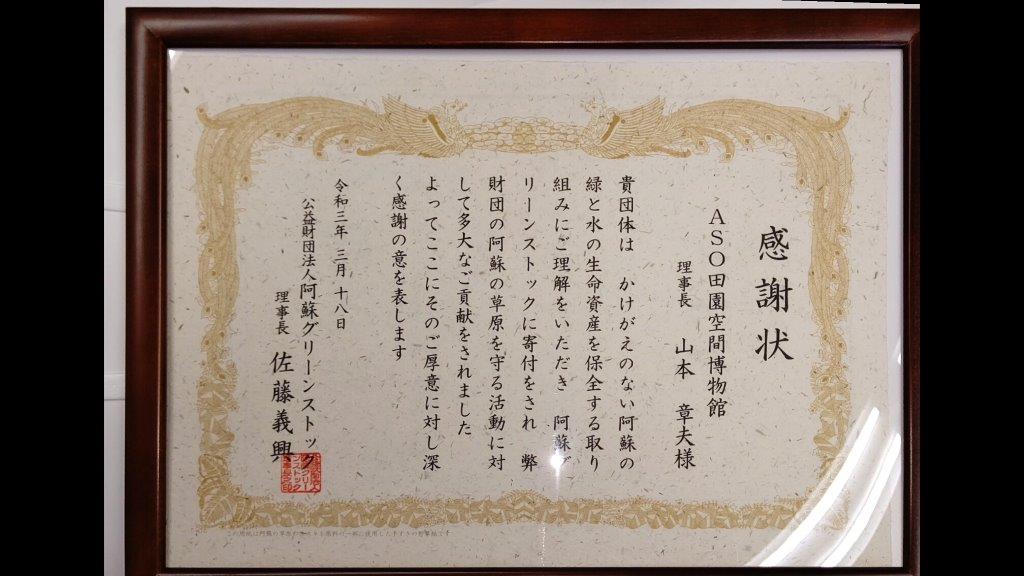 感謝状
ASO田園空間博物館
理事長 山本 章夫様
貴団体は かけがえのない阿蘇の
緑と水の生命資産を保全する取り
組みにご理解をいただき 阿蘇グ
リーンストックに寄付をされ 弊
財団の阿蘇の草原を守る活動に対
して多大なご貢献をされました
よってここにそのご厚意に対し深
く感謝の意を表します
令和三年 三月 十八日
公益財団法人阿蘇グリーンストック
理事長 佐藤義興